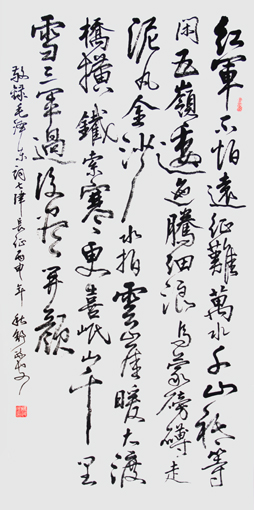 紅軍不怕遠征難萬水千山祇等
闲五嶺逶迤騰細浪烏蒙磅礴走
泥丸金沙水拍雲崖暖大渡
橋横鐵索寒更喜岷山千里
雪三軍過後盡開顔
敬録毛澤東詞七律長征丙申年秋